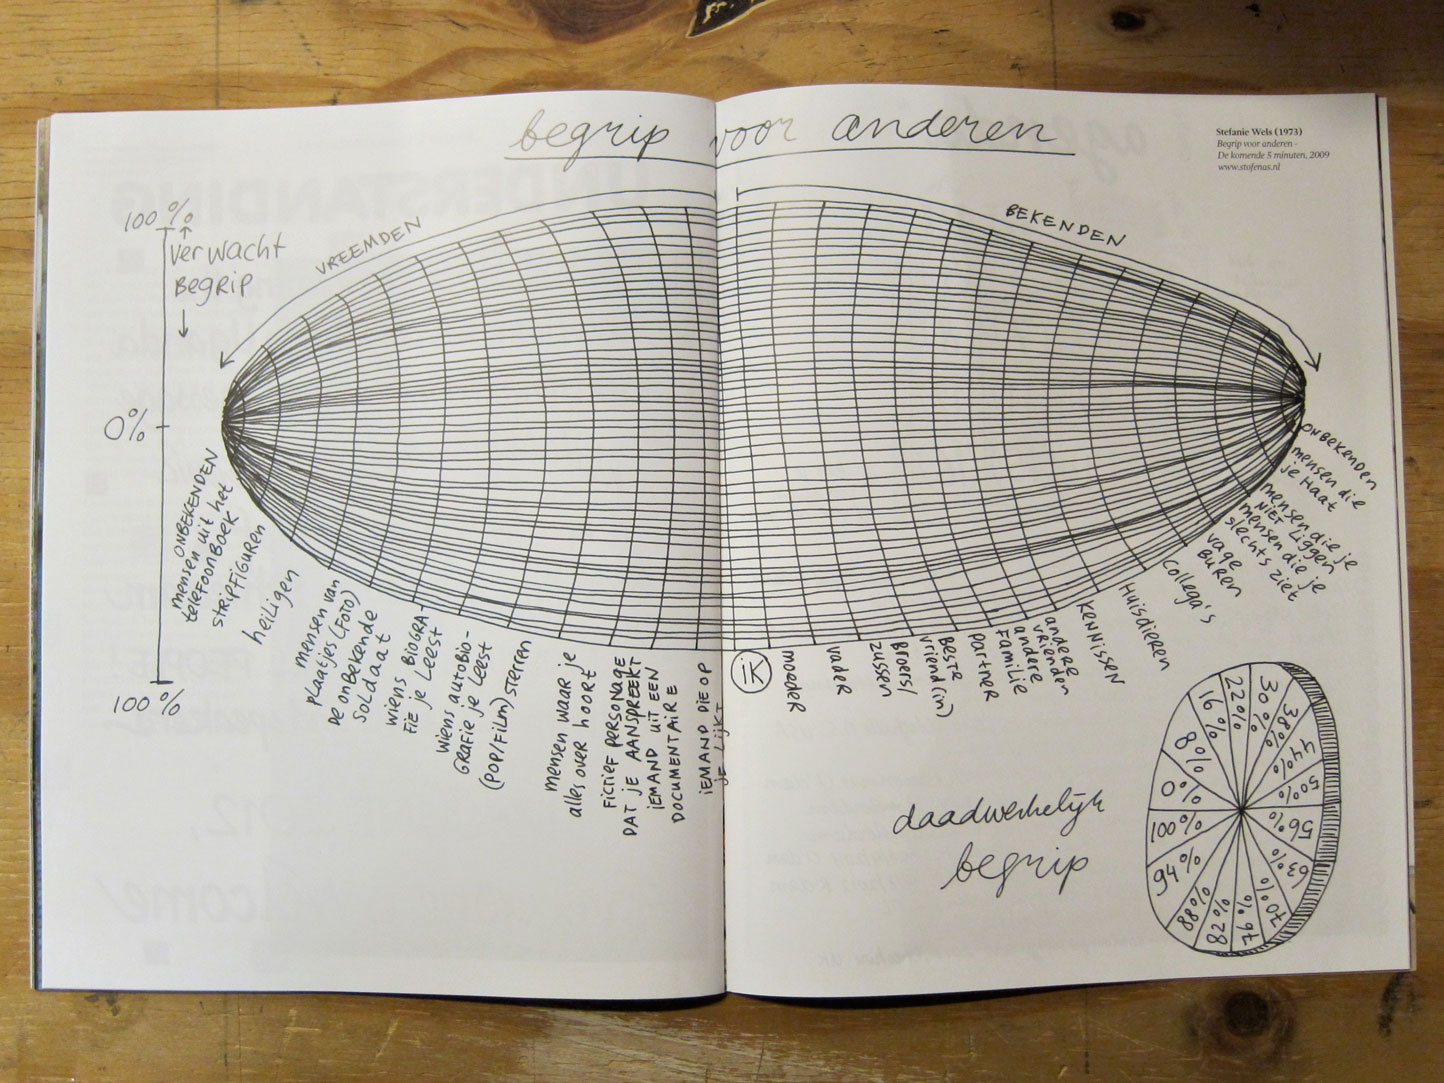 begrip voor anderen
Stefanie Wels (1973)
Begrip voor anderen -
De komende 5 minuten, 2009
www.stofenas.nl
100%
verwacht
begrip
0%
100%
VREEMDEN
BEKENDEN
ONBEKENDEN
mensen uit het
telefoonboek
stripfiguren
heiligen
mensen van
plaatjes (foto)
De onbekende
soldaat
wiens biogra-
fie je leest
wiens autobio-
grafie je leest
(pop/film) sterren
mensen waar je
alles over hoort
fictief personage
dat je aanspreekt
iemand uit een
documentaire
iemand die op
je lijkt
ik
moeder
vader
zussen
broers/
vriend(in)
beste
partner
familie
andere
vrienden
andere
kennissen
Huisdieren
Collega's
vage
buren
mensen die je
slechts ziet
mensen die je
niet liggen
mensen die
je haat
onbekenden
daadwerkelijk
begrip
0%
8%
16%
22%
30%
38%
44%
50%
56%
63%
70%
76%
82%
88%
94%
100%